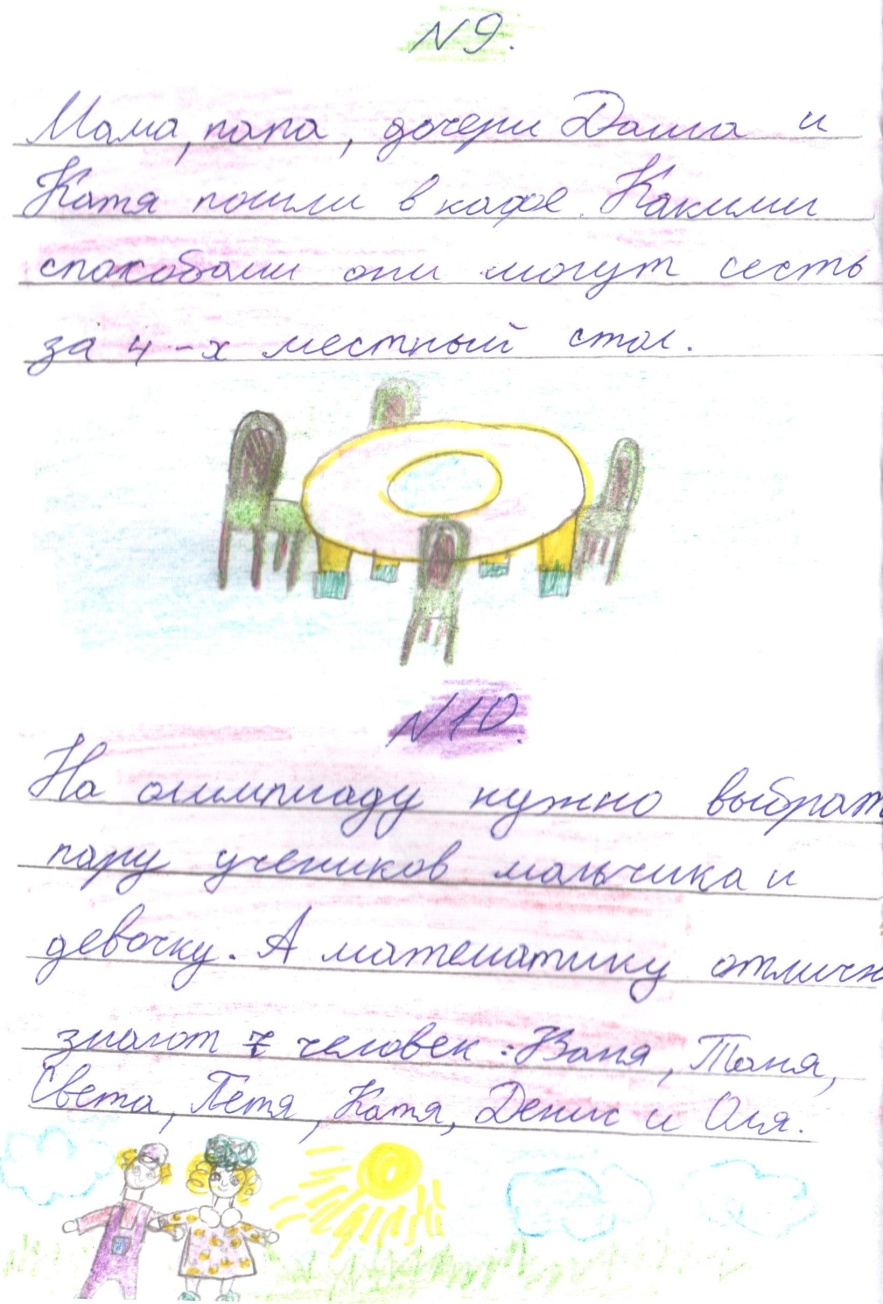 №9.
Мама, папа, дочери Даша и
Катя пошли в кафе. Какими
способами они могут сесть
за 4-х местный стол.
№10.
На олимпиаду нужно выбрат
пару учеников мальчика и
девочку. А математику отличн
знают 7 человек: Ваня, Таня,
Света, Петя, Катя, Денис и Оля.